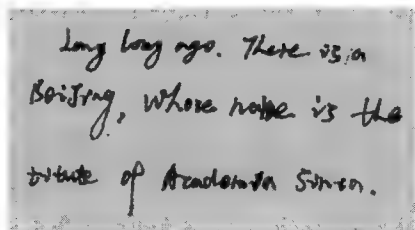 Long long ago. There is a
Beijing, whose name is the
titute of Academia Sinica.